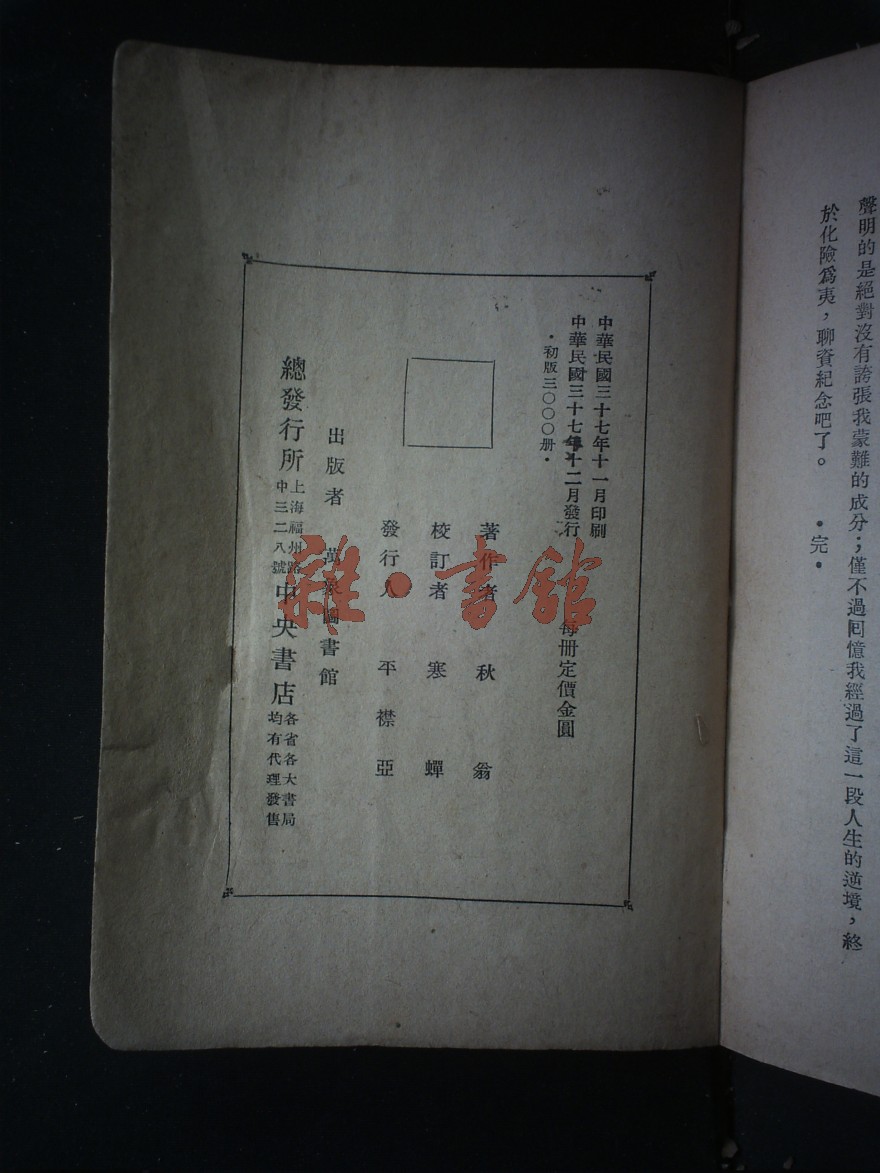 聲明的是絕對沒有誇張我蒙難的成分；僅不過回憶我經過了這一段人生的逆境，終
於化險爲夷，聊資紀念吧了。　•完•
中華民國三十七年十一月印刷
中華民國三十七年十二月發行
•初版三〇〇〇册•
每册定價金圓
著作者　秋翁
校訂者　寒蟬
發行人　平襟亞
出版者　萬象圖書館
總發行所　上海福州路
中三二八號
中央書店　各省各大書局
均有代理發售
雜•書館